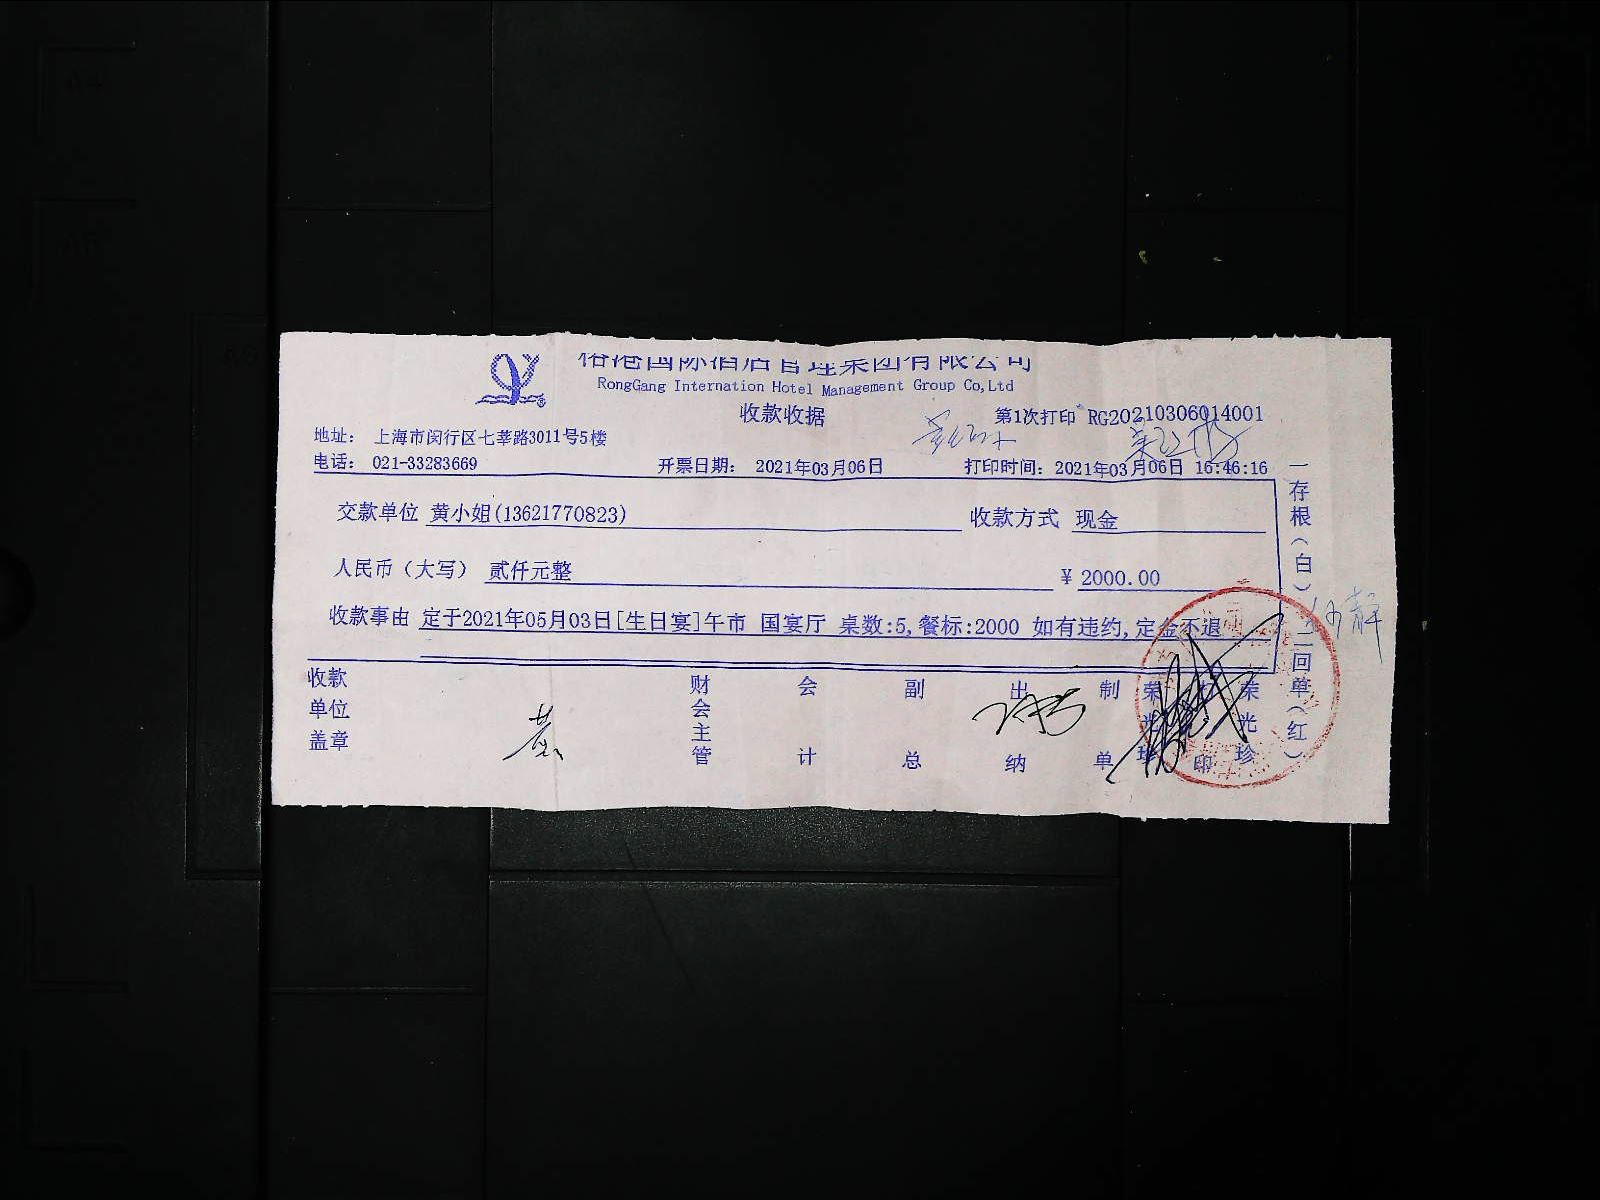 国际酒店管理集团有限公司
RongGang Internation Hotel Management Group Co,Ltd
收款收据
第1次打印 RG20210306014001
地址： 上海市闵行区七莘路3011号5楼
电话： 021-33283669
开票日期： 2021年03月06日
打印时间：2021年03月06日 16:46:16
交款单位 黄小姐(13621770823)
收款方式 现金
人民币（大写） 贰仟元整
¥ 2000.00
收款事由 定于2021年05月03日[生日宴]午市 国宴厅 桌数:5,餐标:2000 如有违约,定金不退
收款单位盖章
黄
财会主管
会计
副总
出纳
制单
荣光珍
印
荣光珍
一存根（白）
二回单（红）